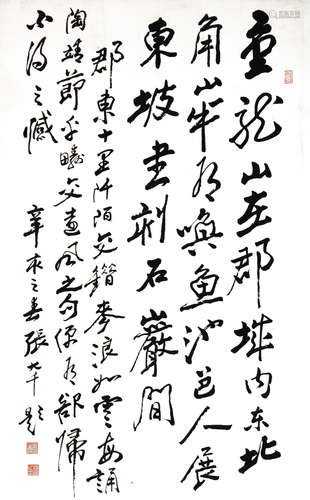 重龍山在郡城内东北
角山半有喚魚池邑人展
東坡書刻石巖間
郡東十里阡陌交錯麥浪如雲每誦
陶靖節平疇交遠風之句便有歸
不得之憾 辛之春張大千題